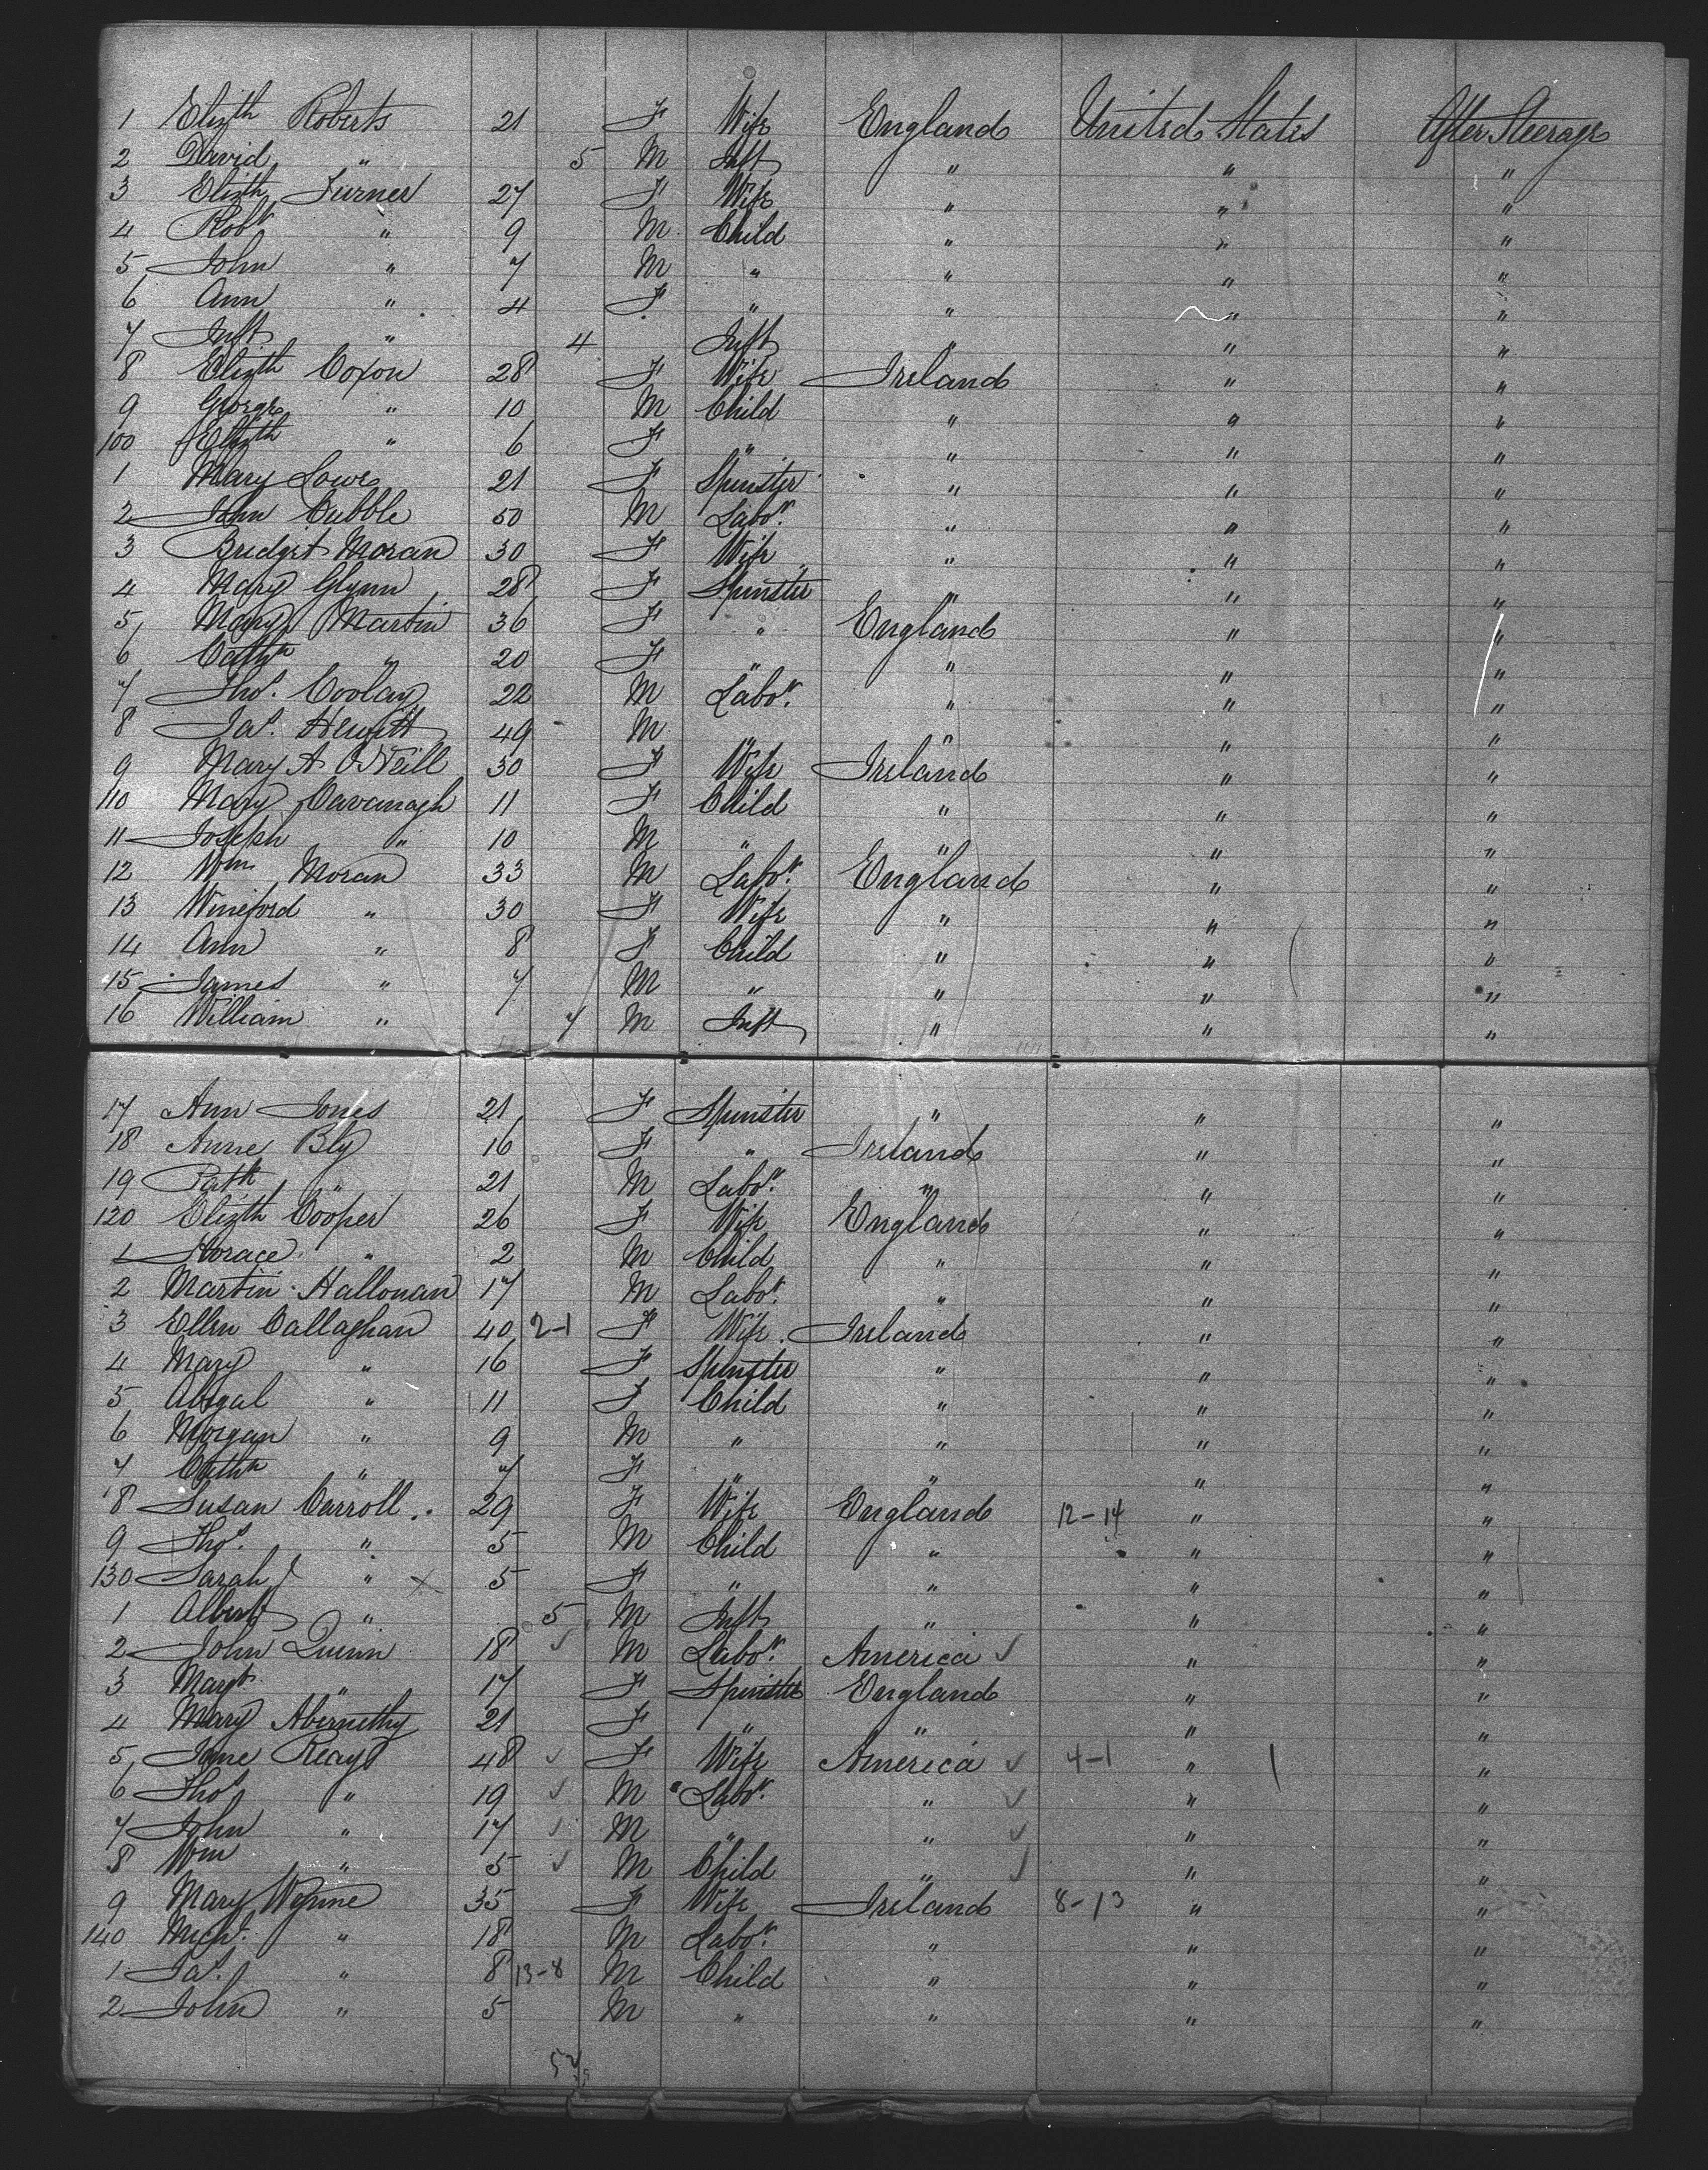 1 Elizth Roberts 21 F Wife England United States After Steerage
2 David " 5 M Inft " " "
3 Elizth Turner 27 F Wife " " "
4 Robt " 9 M Child " " "
5 John " 7 M " " " "
6 Ann " 4 F " " " "
7 Inft " 4 Inft " " "
8 Elizth Coxon 28 F Wife Ireland " "
9 George " 10 M Child " " "
100 Elizth " 6 F " " " "
1 Mary Lowe 21 F Spinster " " "
2 John Cubble 50 M Labor. " " "
3 Bridget Moran 30 F Wife " " "
4 Mary Glynn 28 F Spinster " " "
5 Mary Martin 36 F " England " "
6 Cathn " 20 F " " " "
7 Thos. Coolay 22 M Labor. " " "
8 Jas. Hewitt 49 M " " " "
9 Mary A O'Neill 30 F Wife Ireland " "
110 Mary Cavanagh 11 F Child " " "
11 Joseph " 10 M " " " "
12 Wm Moran 33 M Labor. England " "
13 Wineford " 30 F Wife " " "
14 Ann " 8 F Child " " "
15 James " 7 M " " " "
16 William " 7 M Inft " " "
17 Ann Jones 21 F Spinster " " "
18 Anne Bly 16 F " Ireland " "
19 Patk " 21 M Labor. " " "
120 Elizth Cooper 26 F Wife England " "
1 Horace " 2 M Child " " "
2 Martin Hallonan 17 M Labor. " " "
3 Ellen Callaghan 40 2-1 F Wife Ireland " "
4 Mary " 16 F Spinster " " "
5 Abigal " 11 F Child " " "
6 Morgan " 9 M " " " "
7 Cathn " 7 F " " " "
8 Susan Carroll 29 F Wife England 12-14 " "
9 Thos. " 5 M Child " " "
130 Sarah J " x 5 F " " " "
1 Albert " 5 M Inft " " "
2 John Quinn 18 ✓ M Labor. America ✓ " "
3 Margt " 17 F Spinster England " "
4 Mary Abernethy 21 F " " " "
5 Jane Reay 48 ✓ F Wife America ✓ 4-1 " "
6 Thos " 19 ✓ M Labor. " ✓ " "
7 John " 17 ✓ M " " ✓ " "
8 Wm " 5 ✓ M Child " ✓ " "
9 Mary Wynne 35 F Wife Ireland 8-13 " "
140 Michl. " 18 M Labor. " " "
1 Jas. " 8 13-8 M Child " " "
2 John " 5 M " " " "